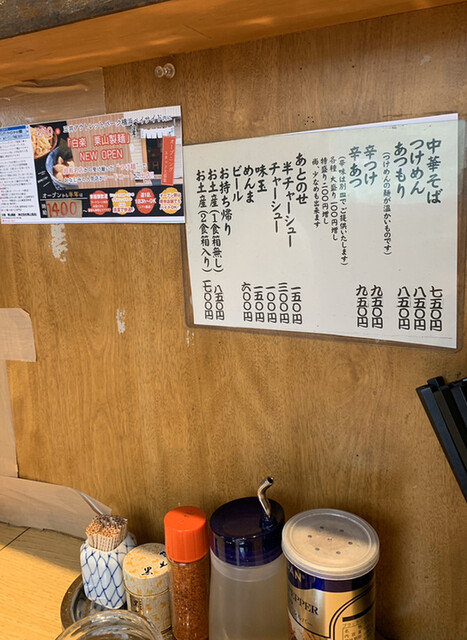 中華そば 七五〇円
つけめん 八五〇円
あつもり 八五〇円
(つけめんの麺が温かいものです)
辛つけ 九五〇円
辛あつ 九五〇円
(辛味は別皿でご提供いたします)
各種 大盛り一〇〇円増し
特盛り二〇〇円増し
尚、少なめも出来ます
あとのせ
半チャーシュー 一五〇円
チャーシュー 三〇〇円
味玉 一〇〇円
めんま 一五〇円
ビール 六〇〇円
お持ち帰り
お土産(1食箱無し) 八五〇円
お土産(2食箱入り) 一七〇〇円
白楽 東山製麺
NEW OPEN
1400
PEPPER